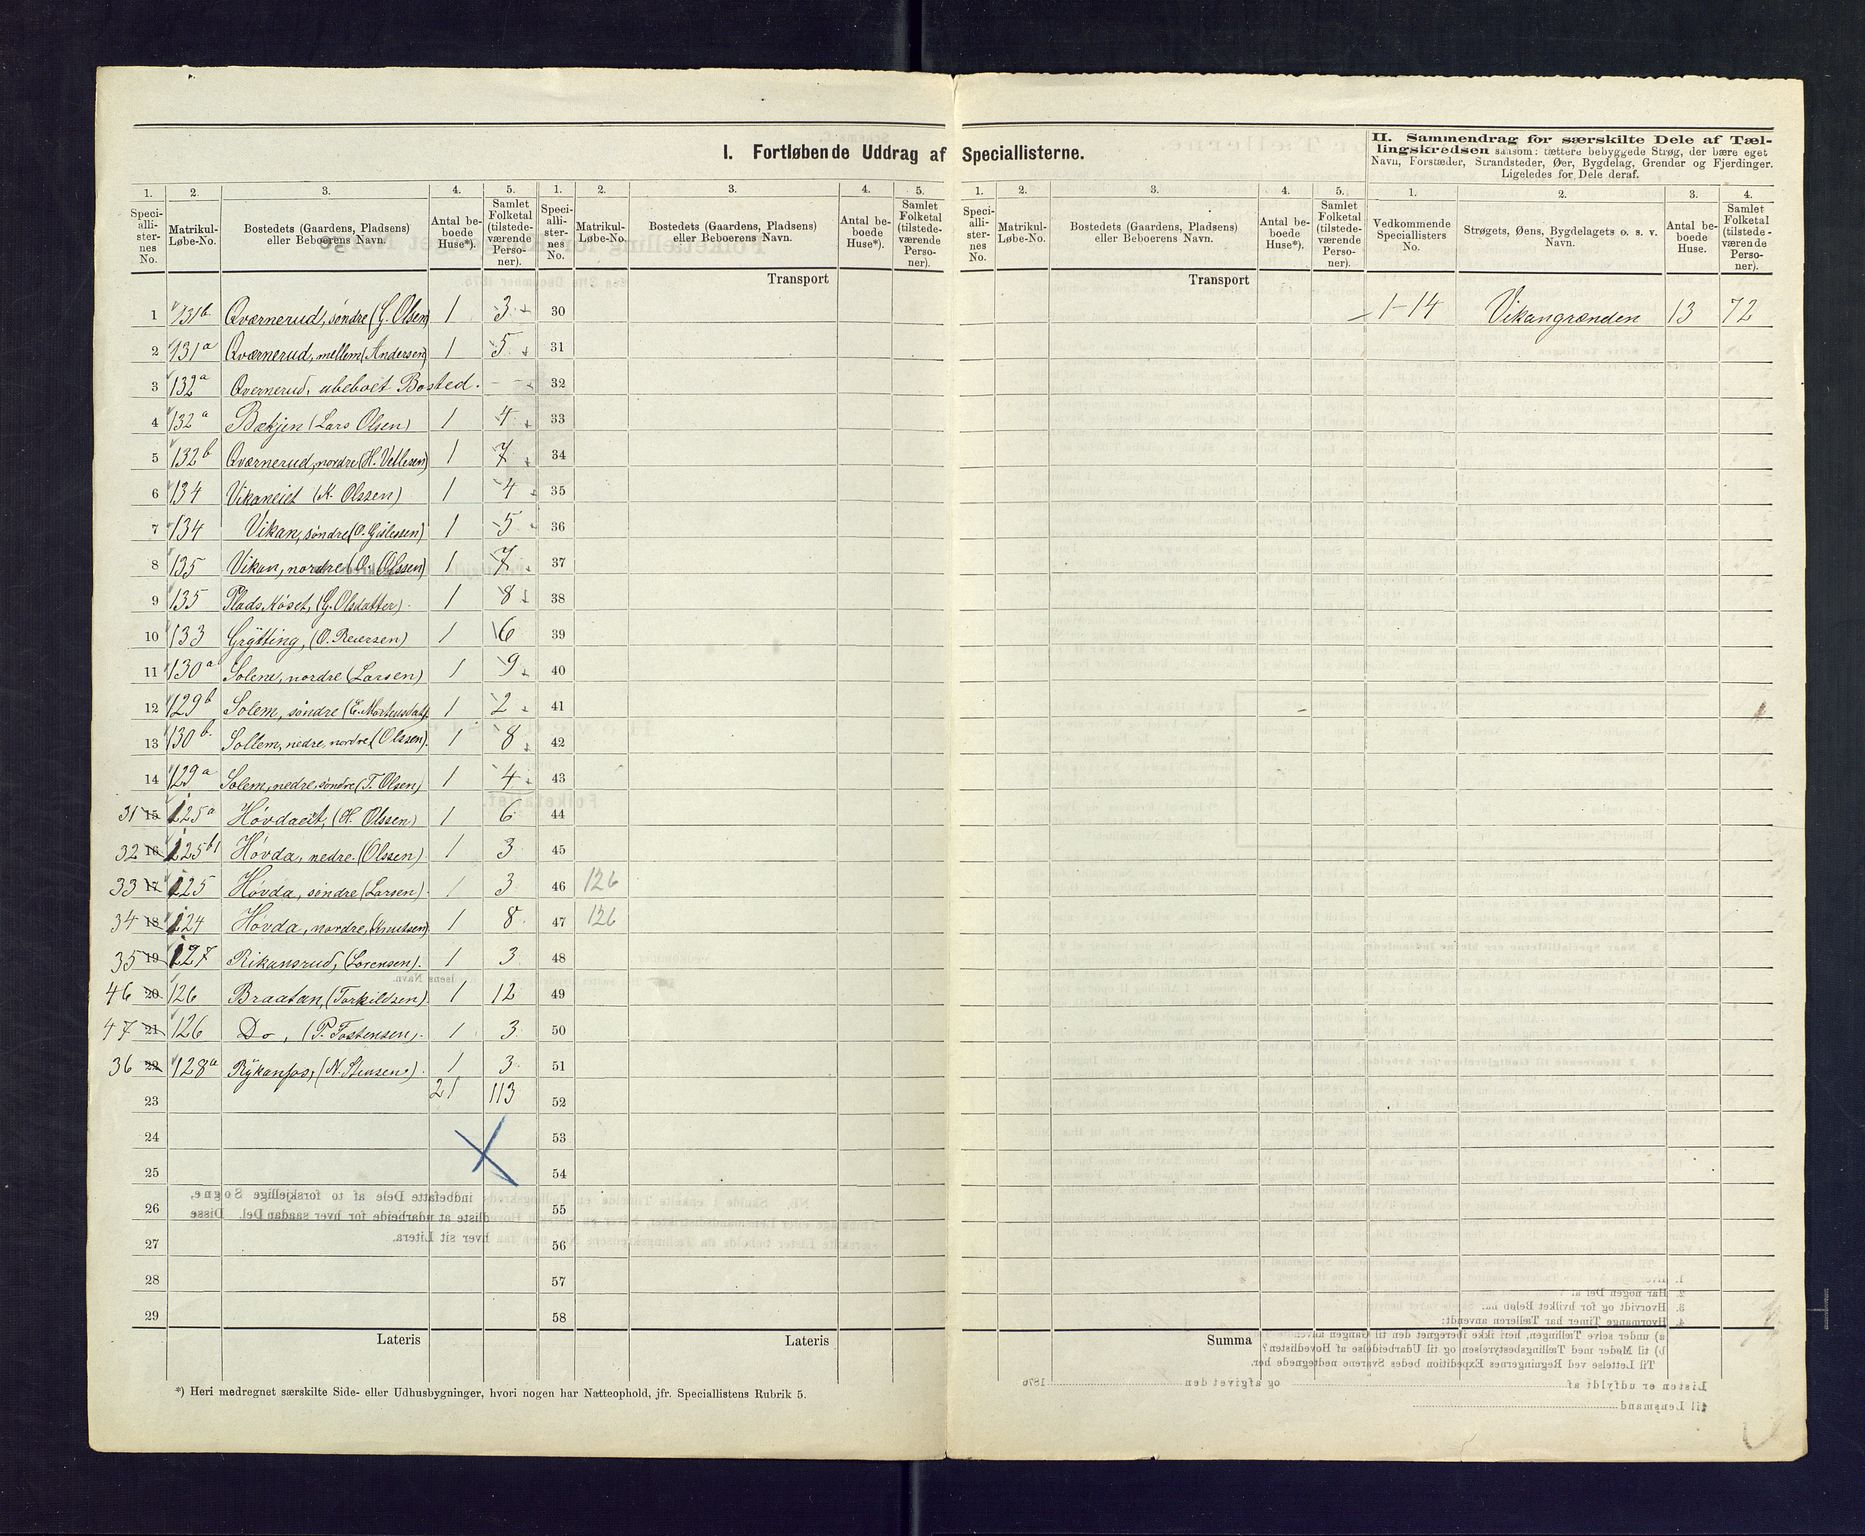 I. Fortløbende Uddrag af Speciallisterne.
II. Sammendrag for særskilte Dele af Tæl-
lingskredsen saasom: tættere bebyggede Strøg, der bære eget
Navn, Forstæder, Strandsteder, Øer, Bygdelag, Grender og Fjerdinger.
Ligeledes for Dele deraf.
1. 2. 3. 4. 5. 1. 2. 3. 4. 5. 1. 2. 3. 4. 5. 1. 2. 3. 4.
Speci-alli-ster-nes No. Matrikul-Løbe-No. Bostedets (Gaardens, Pladsens) eller Beboerens Navn. Antal be-boede Huse*). Samlet Folketal (tilstede-værende Perso-ner).
Speci-alli-ster-nes No. Matrikul-Løbe-No. Bostedets (Gaardens, Pladsens) eller Beboerens Navn. Antal be-boede Huse*). Samlet Folketal (tilstede-værende Perso-ner).
Speci-alli-ster-nes No. Matrikul-Løbe-No. Bostedets (Gaardens, Pladsens) eller Beboerens Navn. Antal be-boede Huse*). Samlet Folketal (tilstede-værende Perso-ner).
Vedkommende Speciallisters No. Strøgets, Øens, Bygdelagets o. s. v. Navn. Antal be-boede Huse. Samlet Folketal (tilstede-værende Perso-ner).
Transport Transport
1 131b. Qværnerud, søndre (G. Olsen) 1 3 30 1-14 Vikangrænden 13 72
2 131a Qværnerud, mellem (Andersen) 1 5 31
3 132a Qvernerud, ubeboet Bosted. - - 32
4 132a Bækjen (Lars Olsen) 1 4 33
5 132b Qværnerud, nordre (H. Vetlesen) 1 7 34
6 134 Vikaneiet (K. Olssen) 1 4 35
7 134 Vikan, søndre (O. Gislessen) 1 5 36
8 135 Vikan, nordre (O. Olssen) 1 7 37
9 135 Plads Køset, (G. Olsdatter). 1 8 38
10 133 Grÿtting, (O. Reiersen) 1 6 39
11 130a Solem, nordre (Larsen) 1 9 40
12 129b Solem, søndre (E. Mortensdatt). 1 2 41
13 130b. Sollem, nedre, nordre (Olssen). 1 8 42
14 129a Solem, nedre, søndre (T. Olsen) 1 4 43
31 15 125a Høvdaeit, (H. Olssen) 1 6 44
32 16 125b1 Høvda, nedre. (Olssen) 1 3 45
33 17 125 Høvda, søndre (Larsen). 1 3 46 126
34 18 124 Høvda, nordre, (Knutsen) 1 8 47 126
35 19 127 Rikansrud, (Sørensen). 1 3 48
46 20 126 Braatan, (Torkildsen) 1 12 49
47 21 126 Do, (P. Tostensen). 1 3 50
36 22 128a Rÿkanfos, (N. Stensen). 1 3 51
23 21 113 52
24 53
25 54
26 55
27 56
28 57
29 58
Lateris Lateris Summa
*) Heri medregnet særskilte Side- eller Udhusbygninger, hvori nogen har Natteophold, jfr. Speciallistens Rubrik 5.